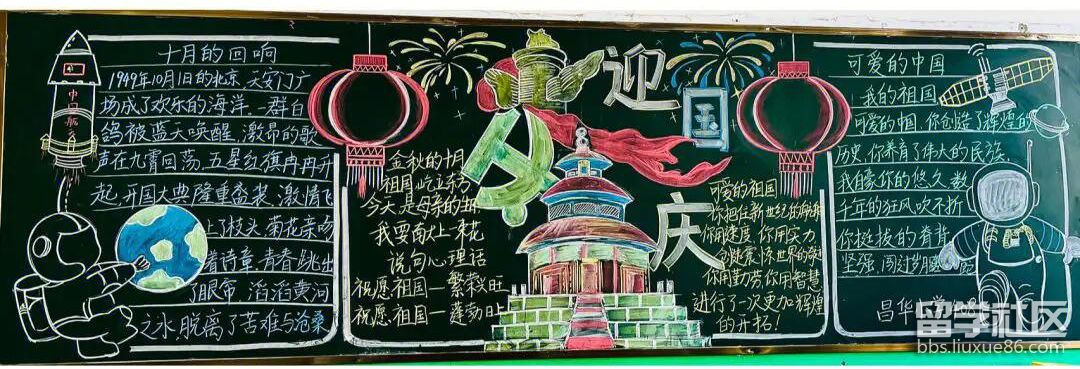 十月的回响
1949年10月1日的北京 天安门广
场成了欢乐的海洋,一群白
鸽被蓝天唤醒 激昂的歌
声在九霄回荡,五星红旗冉冉升
起,开国大典隆重盛装,激情飞
上枝头 菊花亲吻
着诗章,青春跳出
了眼帘,滔滔黄河
之水,脱离了苦难与沧桑
中国航天
金秋的十月
祖国屹立东方
今天是母亲的
我要献上一束花
说句心理话
祝愿祖国—繁荣兴旺
祝愿祖国—蓬勃日上
迎国庆
可爱的祖国
你把住新世纪的
你用速度,你用实力
你用勤劳,你用智慧
进行了一次更加辉煌
的开拓!
可爱的中国
我的祖国
可爱的中国,你创造了辉煌的
历史,你养育了伟大的民族,
我自豪你的悠久,数
千年的狂风吹不折
你挺拔的脊背
坚强,闯过岁月
昌华
留学社区
bbs.liuxue86.com